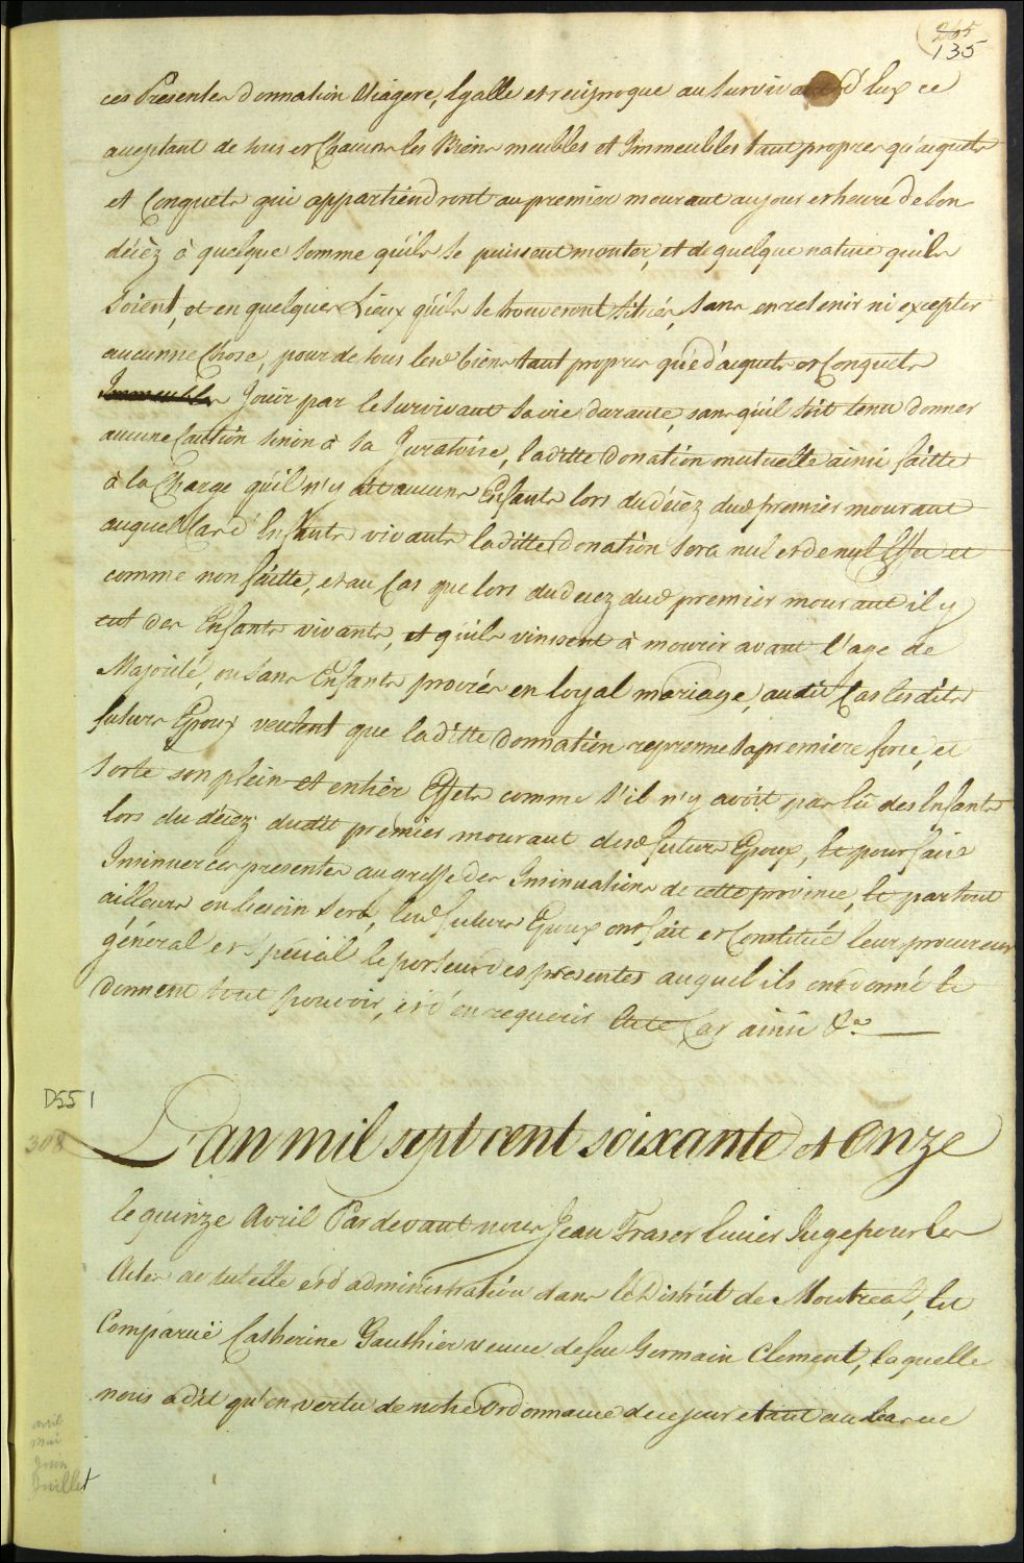 265
135
ces Presentes donnation Viagere, Egalle et reciproque au Survivant d'Eux ce
acceptant de tous et Chacuns les Biens meubles et Immeubles tant propres qu'acquets
et Conquets qui appartiendront au premier mourant au jour et heure de Son
décèz à quelque Somme qu'ils Se puissent monter, et de quelque nature qu'ils
Soient, et en quelques Lieux qu'ils Se trouveront Situés, Sans en retenir ni excepter
aucunne Chose, pour de tous lesd biens tant propres que d'acquets et Conquets
Immeubles Jouir par le Survivant Sa vie durante, sans qu'il soit tenu donner
aucune Caution Sinon à Sa Juratoire, la ditte donation mutuelle ainsi faitte
à la Charge qu'il n'y ait aucuns Enfants lors du décèz dud premier mourant
auquel Cas d'Enfants vivants la ditte donation Sera nul et de nul Effet et
comme non faitte, et au Cas que lors du decez dud premier mourant il y
eut des Enfants vivants, et qu'ils vinssent à mourir avant l'age de
Majorité, ou Sans Enfants procréés en loyal mariage, audit Cas les dits
futurs Epoux veulent que la ditte donnation reprenne Sa premiere force, et
Sorte son plein et entier Effets comme S'il n'y avoit pas Eû des Enfants
lors du décèz dudit premier mourant desd futurs Epoux, Et pour faire
Insinuer ces presentes au greffe des Insinuations de cette province, Et partout
ailleurs ou besoin Sera, lesd futurs Epoux ont fait et Constitué leur procureur
général et Special le porteur des presentes auquel ils ont donné Et
donnent tout pouvoir, et d'en requerir Acte Car ainsi &a
DSS 1
308
L'an mil sept cent soixante et Onze
le quinze Avril Pardevant nous Jean Fraser Ecuier Juge pour les
Actes de tutelle et d'administration dans le District de Montreal, Est
Comparuë Catherine Gauthier veuve de feu Germain Clement, laquelle
nous a dit qu'en vertu de notre Ordonnance de ce jour etant au bas de
avril
mai
Juin
Juillet